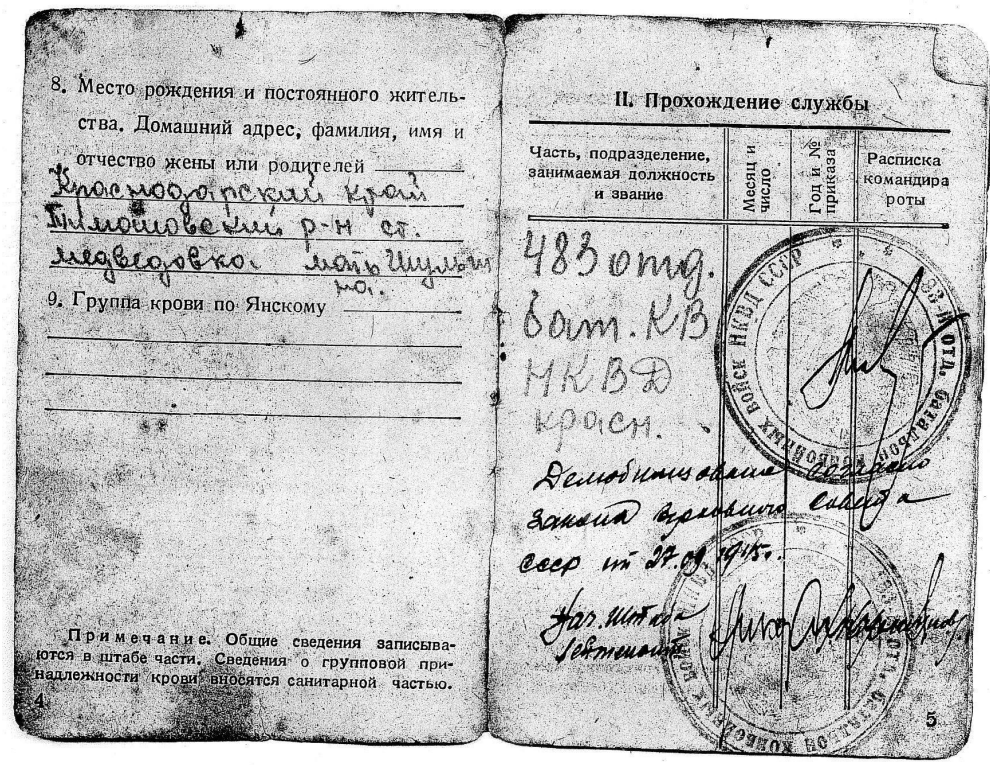 8. Место рождения и постоянного житель-
ства. Домашний адрес, фамилия, имя и
отчество жены или родителей
Краснодарский край
Тимашовский р-н ст.
медведовка. мать Шульги
на.
9. Группа крови по Янскому
Примечание. Общие сведения записыва-
ются в штабе части. Сведения о групповой при-
надлежности крови вносятся санитарной частью.
4
II. Прохождение службы
Часть, подразделение,
занимаемая должность
и звание
Месяц и
число
Год и №
приказа
Расписка
командира
роты
483 отд.
бат. КВ
НКВД
красн.
ОТД. БАТАЛЬОН КОНВОЙНЫХ ВОЙСК НКВД СССР
Демобилизован согласно
закона Верховного Совета
СССР от 27.09.1945г.
Нач. штаба
лейтенант
ОТД. БАТАЛЬОН КОНВОЙНЫХ ВОЙСК
5